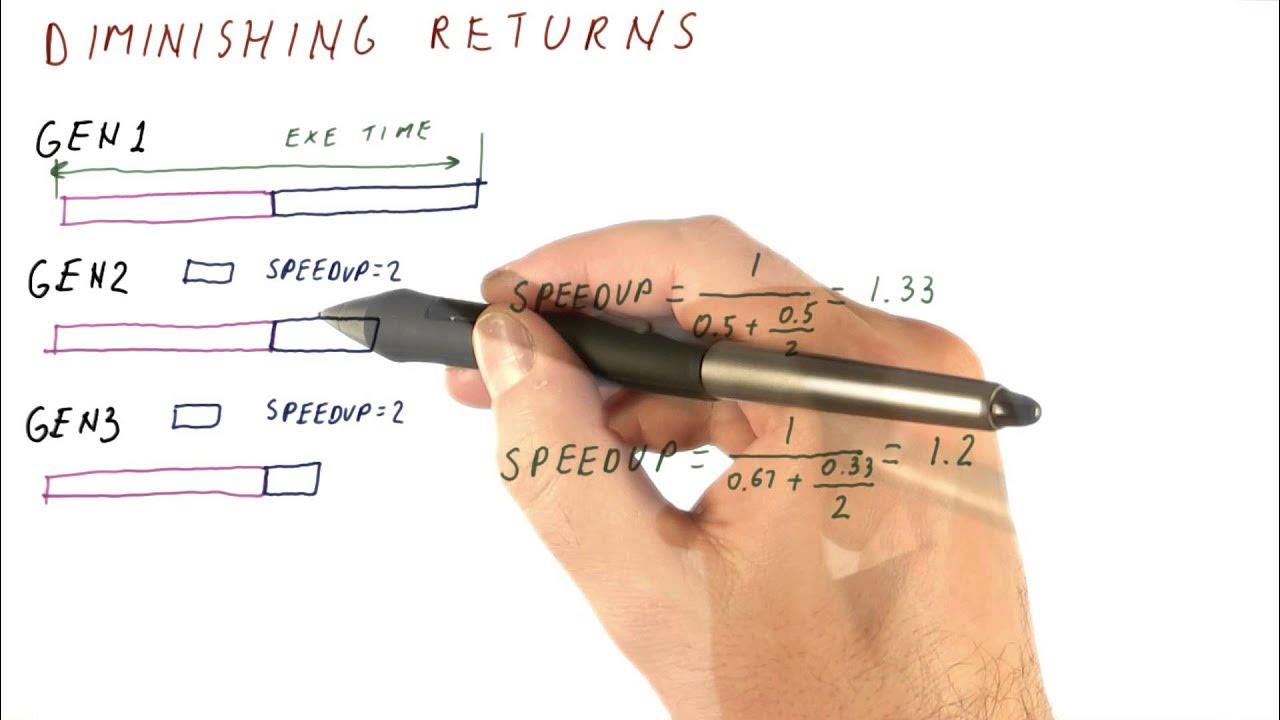 DIMINISHING RETURNS
GEN1 EXE TIME
GEN2 SPEEDUP=2
SPEEDUP = 1 / (0.5 + 0.5/2) = 1.33
GEN3 SPEEDUP=2
SPEEDUP = 1 / (0.67 + 0.33/2) = 1.2